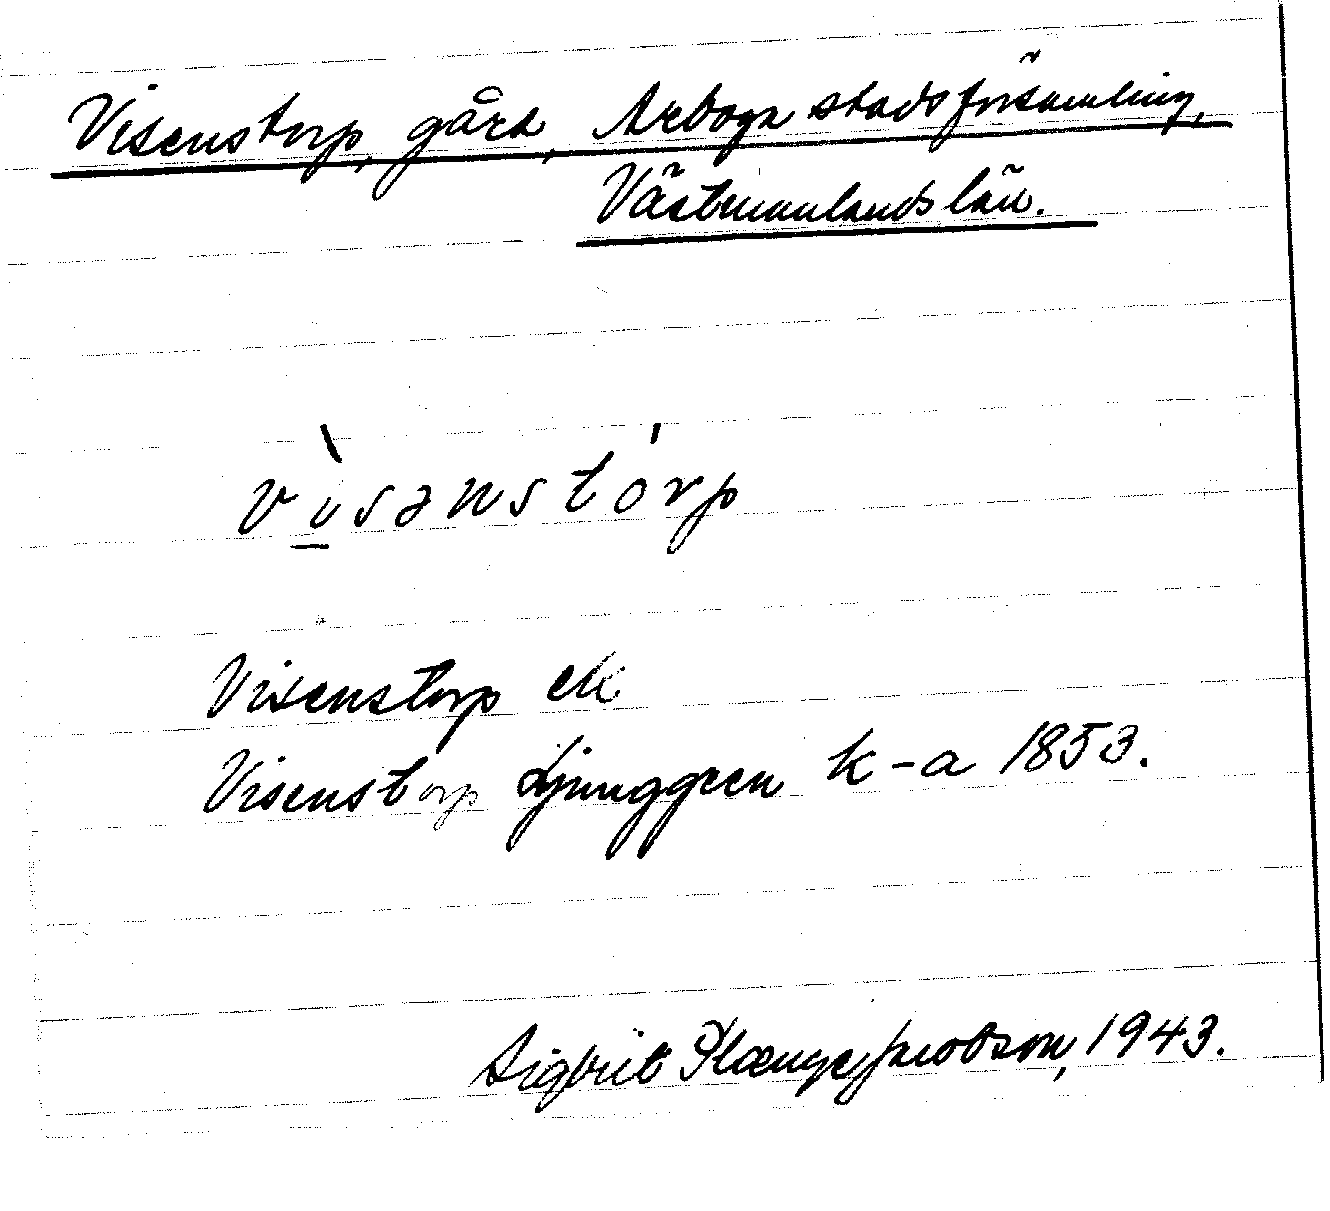 Visenstorp, gård, Arboga stadsförsamling,
Västmanlands län.
vìsənstórp
Visenstorp ek
Visenstorp Ljunggren k-a 1853.
Sigbrit Plænge Jacobson, 1943.